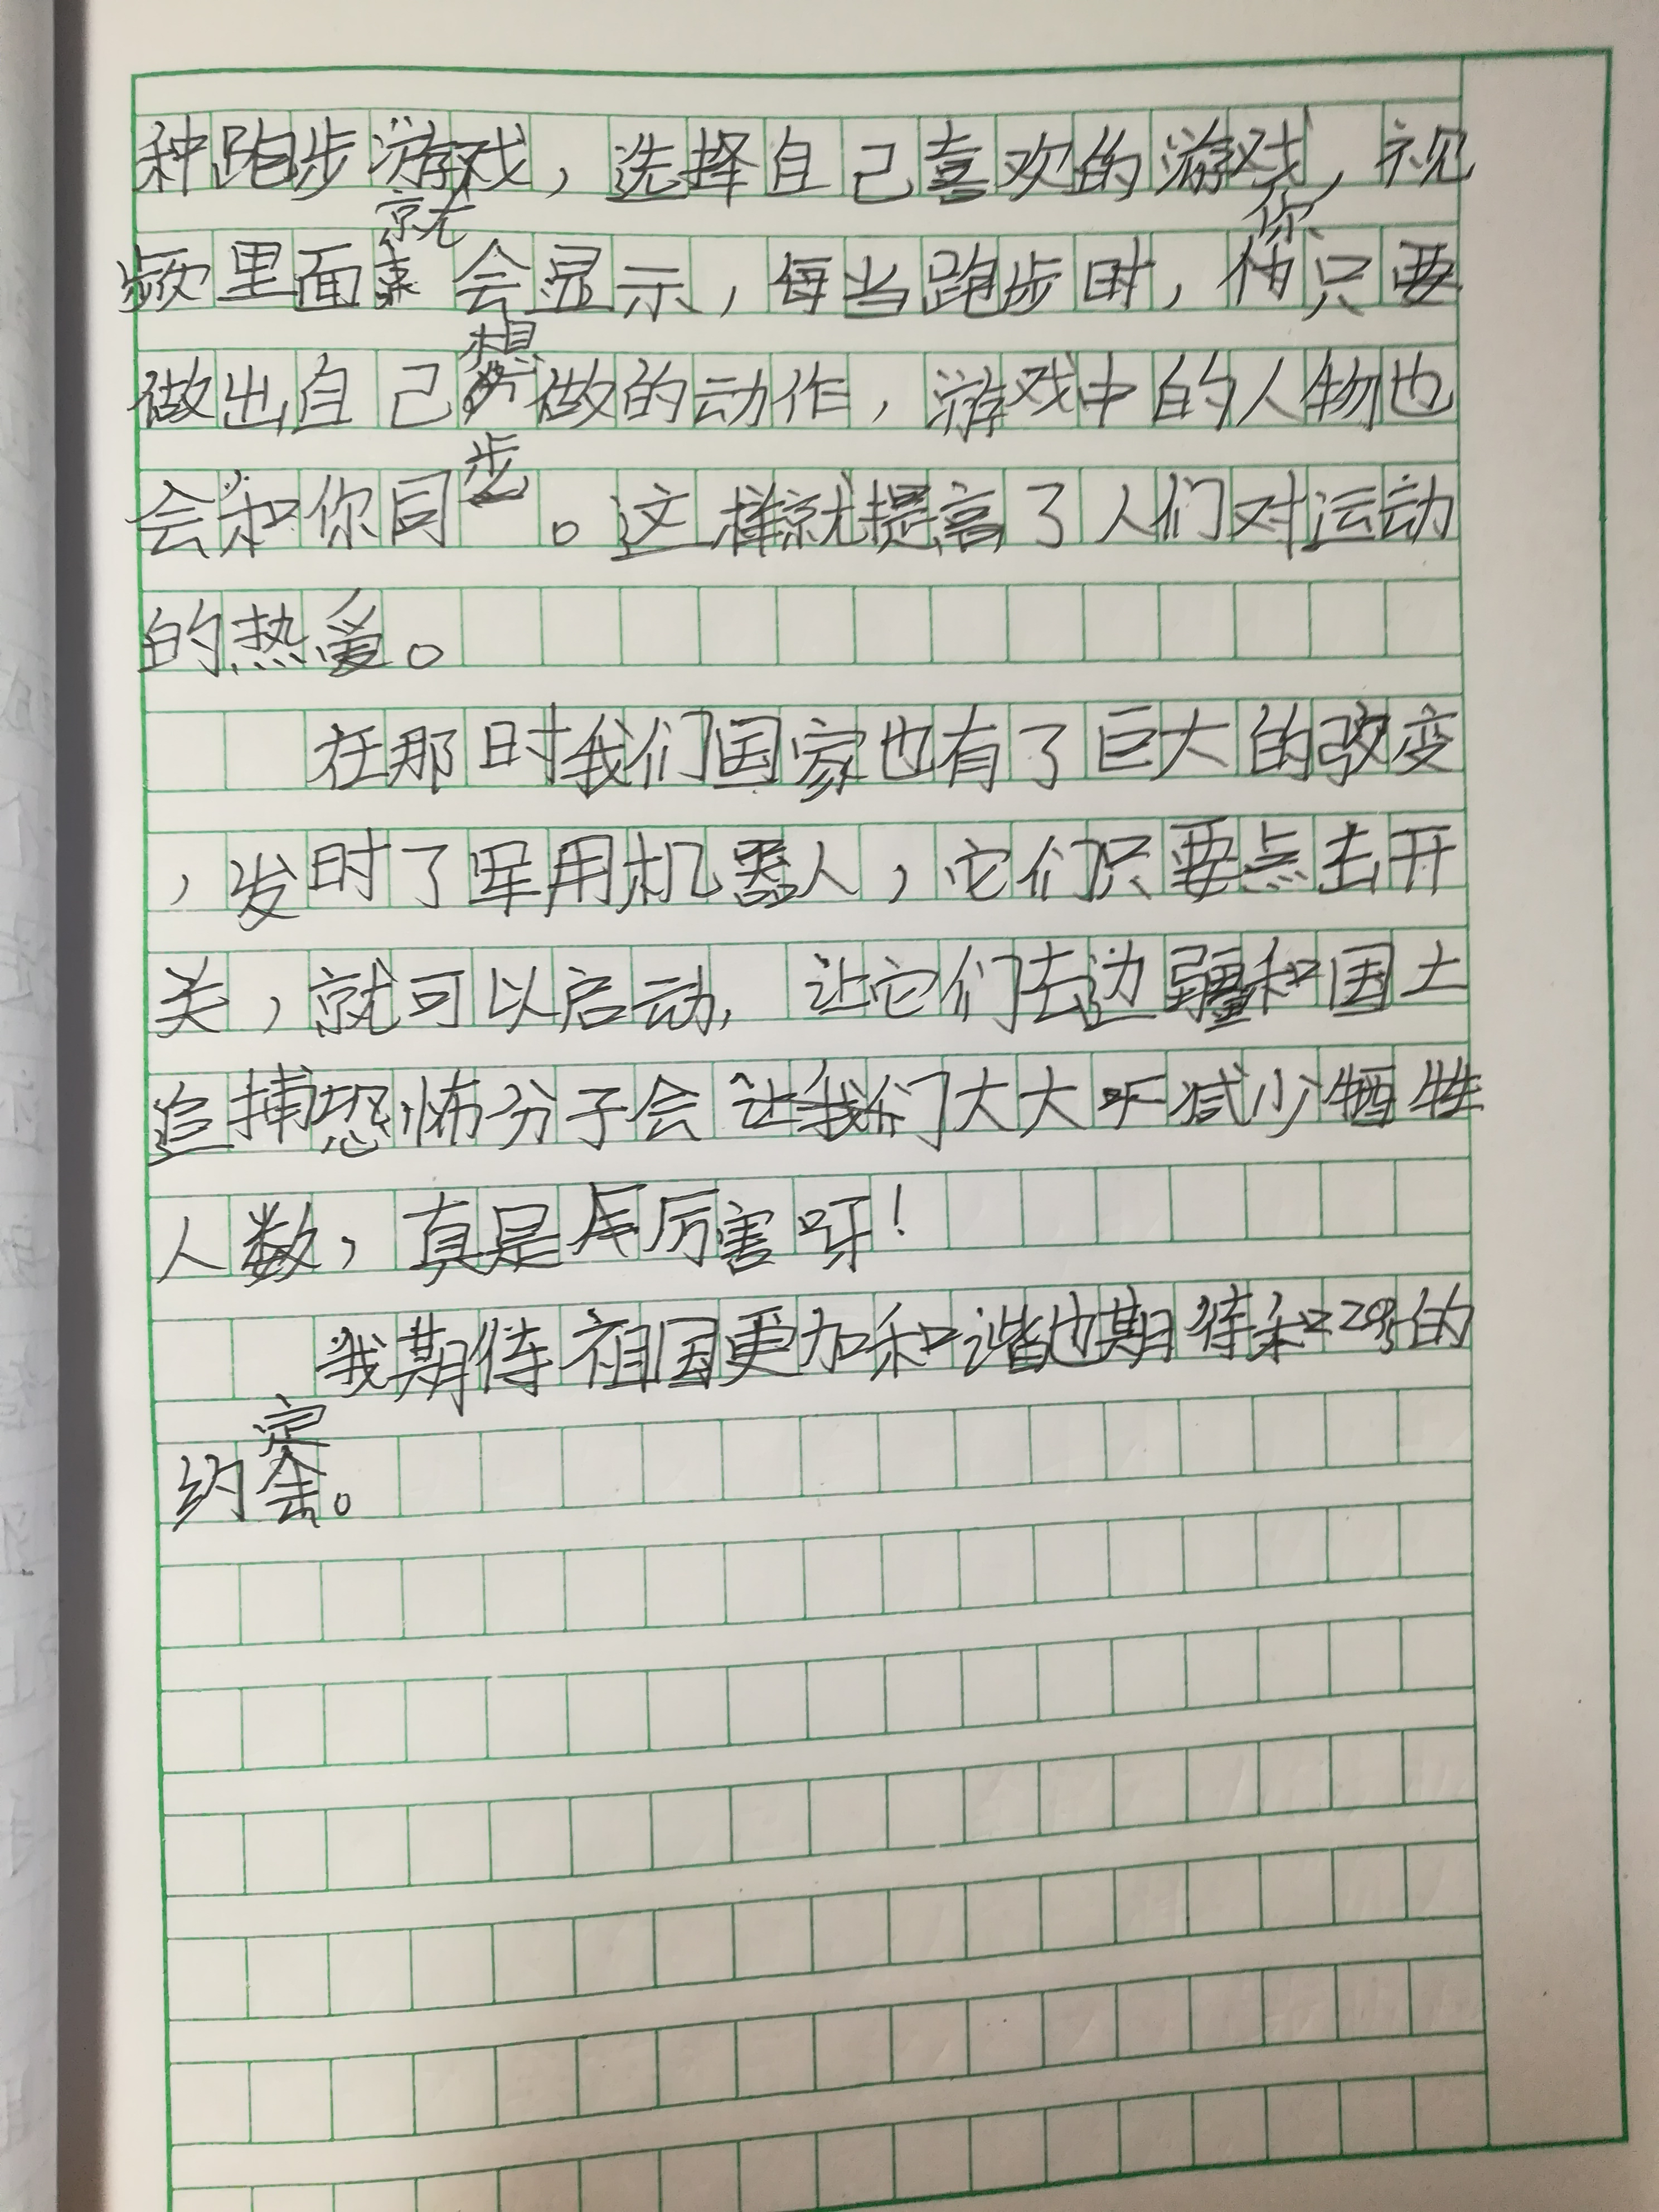 种跑步游戏，选择自己喜欢的游戏，视
频里面就会显示，每当跑步时，你只要
做出自己想做的动作，游戏中的人物也
会和你同步。这样就提高了人们对运动
的热爱。
在那时我们国家也有了巨大的改变
，发时了军用机器人，它们只要点击开
关，就可以启动，让它们去边疆和国土
追捕恐怖分子会让我们大大减少牺牲
人数，真是厉害呀！
我期待祖国更加和谐也期待和的
约定。